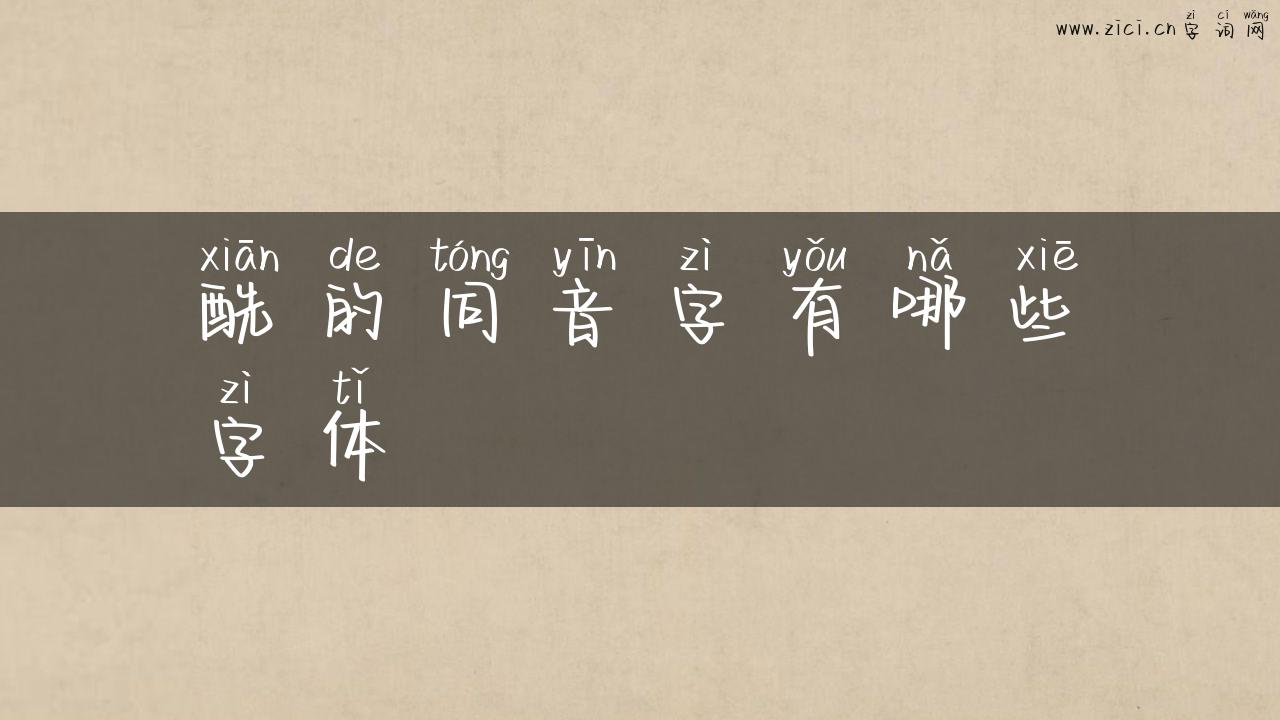 zì cí wǎng
www.zici.cn 字词网
xiān de tóng yīn zì yǒu nǎ xiē
酰的同音字有哪些
zì tǐ
字体